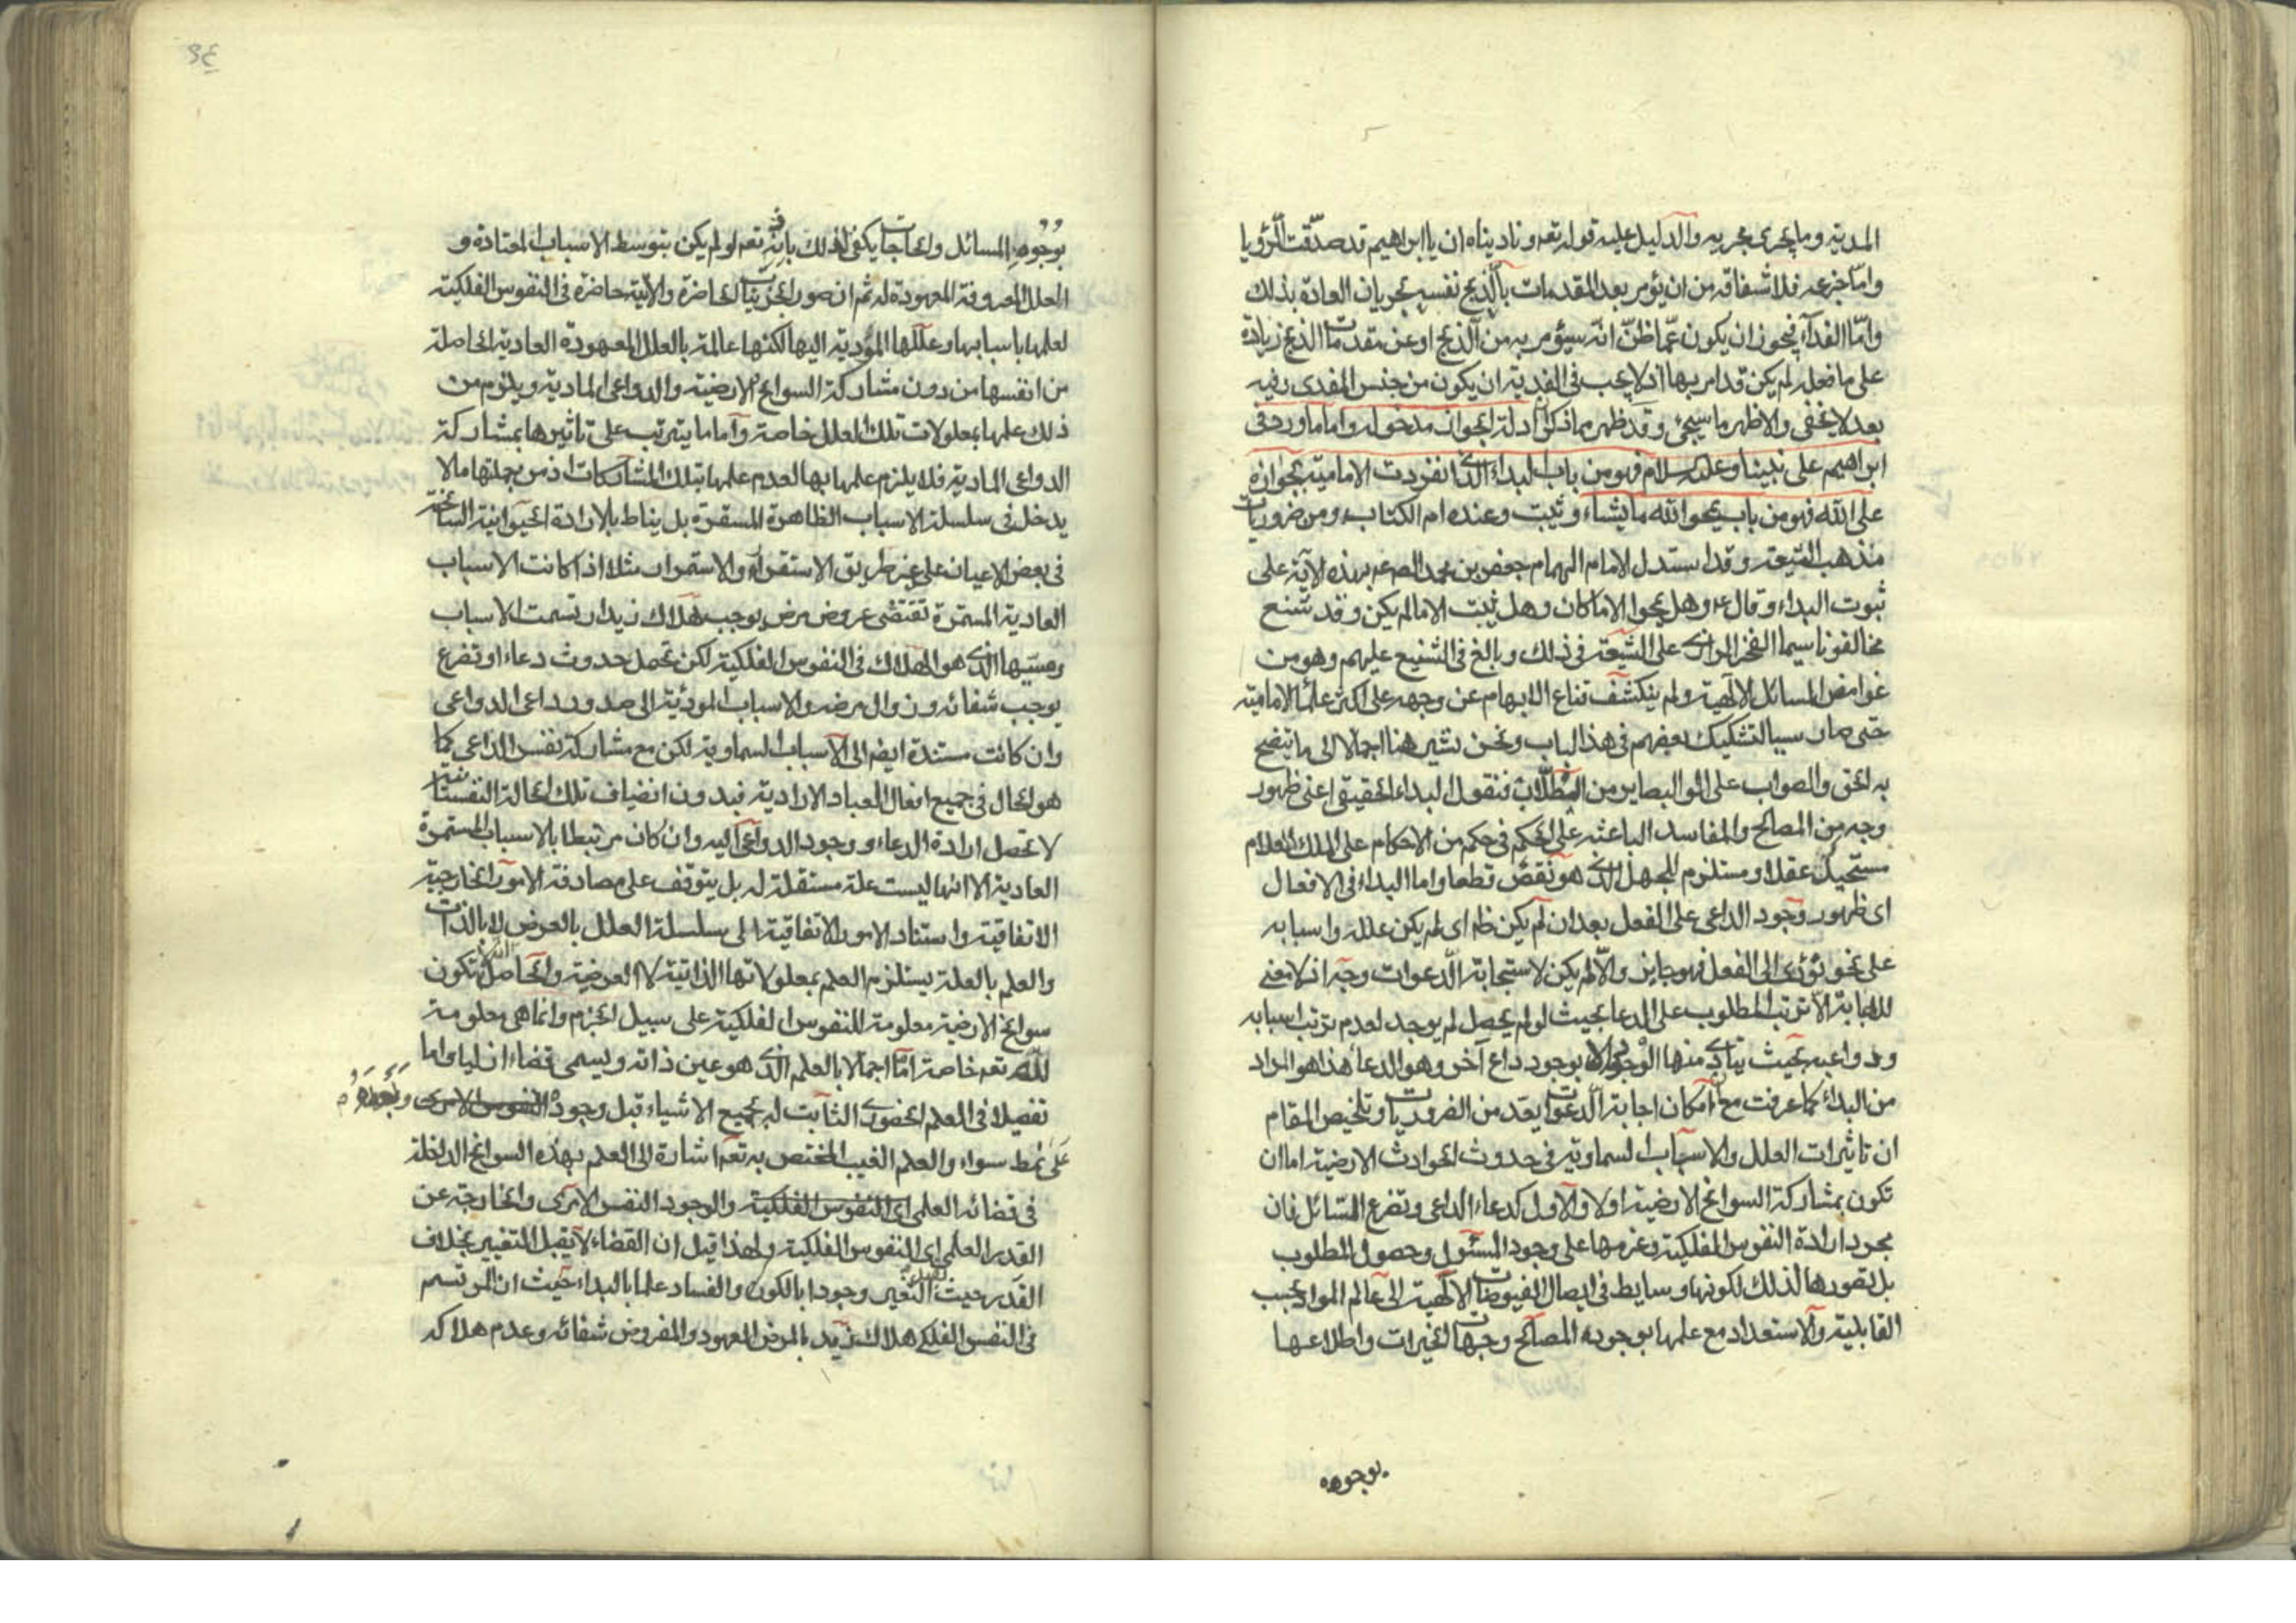 المدية وما يجرى مجريه والدليل عليه قوله تعه وناديناه ان يا ابراهيم قد صدّقت الرّؤيا
وامّا جزعه فلا شفاقه من ان يؤمر بعد المقدمات بالذبح نفسه بجريان العادة بذلك
وامّا الفدآء فيجوز ان يكون عمّا ظنّ انّه سيؤمر به من الذبح او عن مقدمات الذبح زيادة
على ما فعله لم يكن قد امر بها اذ لا يجب فى الفدية ان يكون من جنس المفدى وفيه
بعد لا يخفى والاظهر ما سيجئ وقد ظهر مما ذكر ان ادلة الجواز مدخولة واما ما ورد فى
ابراهيم على نبينا وعليه السلام فهو من باب البداء الذى انفردت الامامية بجوازه
على الله فهو من باب يمحوا الله ما يشاء ويثبت وعنده ام الكتاب ومن ضروريات
مذهب الشيعة وقد استدل الامام الهمام جعفر بن محمد الصه عه بهذه الآية على
ثبوت البداء وقال ع وهل يمحوا الا ما كان وهل يثبت الا ما لم يكن وقد شنع
مخالفونا سيما الفخر الرازى على الشيعة فى ذلك وبالغ فى التشنيع عليهم وهو من
غوامض المسائل الالهية ولم ينكشف قناع الابهام عن وجهه على اكثر علماء الامامية
حتى صار سببا لتشكيك بعضهم فى هذا الباب ونحن نشير هنا اجمالا الى ما يتضح
به الحق والصواب على اولوا البصاير من الطلاب فنقول البداء الحقيقى اعنى ظهور
وجه من المصالح والمفاسد الباعثه على الحكم فى حكم من الاحكام على الملك العلام
مستحيل عقلا ومستلزم للجهل الذى هو نقص قطعا واما البداء فى الافعال
اى ظهور وجود الداعى على الفعل بعد ان لم يكن ظه اى لم يكن علله واسبابه
على نحو يؤدى الى الفعل فهو جايز والّا لم يكن لاستجابة الدعوات وجه اذ لا معنى
للاجابة الا ترتب المطلوب على الدعا بحيث لو لم يحصل لم يوجد لعدم ترتب اسبابه
ودواعيه بحيث يتادى منها الى وجوده الا بوجود داع آخر وهو الدعا هذا هو المراد
من البداء كما عرفت مع ان امكان اجابة الدعوات يعد من الضروريات وتلخيص المقام
ان تاثيرات العلل والاسباب السماوية فى حدوث الحوادث الارضية اما ان
تكون بمشاركة السوانح الارضية اولا والاول كدعاء الداعى وتضرع السّائل فان
مجرد ارادة النفوس الفلكية وعزمها على وجود المسئول وحصول المطلوب
بل تصورها لذلك لكونها وسايط فى ايصال الفيوضات الالهية الى عالم المواد بحسب
القابلية والاستعداد مع علمها بوجوده المصالح وجهات الخيرات واطلاعها
بوجوه
٩٤
بوجوه المسائل والحاجات يكفى لذلك باذنه تعه ولو لم يكن بتوسط الاسباب المعتادة و
العلل المعروفة المعهودة له ثم ان صور الجزئيات الحاضرة والآتية حاضرة فى النفوس الفلكية
لعلمها باسبابها وعللها المؤدية اليها لكنها عالمة بالعلل المعهودة العادية الحاصلة
من انفسها من دون مشاركة السوانح الارضية والدواعى المادية ويلزم من
ذلك علمها بمعلولات تلك العلل خاصة واما ما يترتب على تاثيرها بمشاركة
الدواعى المادية فلا يلزم علمها بها لعدم علمها بتلك المشاركات اذ من جملتها ما لا
يدخل فى سلسلة الاسباب الظاهرة المستقرة بل يناط بالارادة الحيوانية السانحة
فى بعض الاعيان على غير طريق الاستقرار والاستمرار مثلا اذا كانت الاسباب
العادية المستمرة تقتضى عروض مرض يوجب هلاك زيد ارتسمت الاسباب
ومسببها الذى هو الهلاك فى النفوس الفلكية لكن تحمل حدوث دعاء او تضرع
يوجب شفائه وزوال مرضه والاسباب المؤدية الى صدور داعى الدواعى
وان كانت مستندة ايضم الى الاسباب السماوية لكن مع مشاركة نفس الداعى كما
هو الحال فى جميع افعال العباد الارادية فبدون انضياف تلك الحالة النفسانية
لا تحصل ارادة الدعاء ووجود الدواعى اليه وان كان مرتبطا بالاسباب المستمرة
العادية الا انها ليست علة مستقلة له بل يتوقف على مصادفة الامور الخارجية
الاتفاقية واستناد الامور الاتفاقية الى سلسلة العلل بالعرض لا بالذات
والعلم بالعلة يستلزم العلم بمعلولاتها الذاتية لا العرضية والحاصل انه لا تكون
سوانح الارضية معلومة للنفوس الفلكية على سبيل الجزم وانما هى معلومة
لله تعه خاصة امّا اجمالا بالعلم الذى هو عين ذاته ويسمى قضاء ازليا واما
تفصيلا فى العلم الحضورى الثابت له بجميع الاشياء قبل وجوده النفوس الامرى وبعده
على نمط سواء والعلم الغيب المختص به تعه اشارة الى العلم بهذه السوانح الداخلة
فى قضائه العلمى اى النفوس الفلكية والوجود النفس الامرى والخارجة عن
القدر العلمى اى النفوس الفلكية ولهذا قيل ان القضاء لا يقبل التغيير بخلاف
القدر حيث يقبل التغير وجودا بالكون والفساد علما بالبداء حيث ان المرتسم
فى النفس الفلكى هلاك زيد بالمرض المعهود والمفروض شفائه وعدم هلاكه